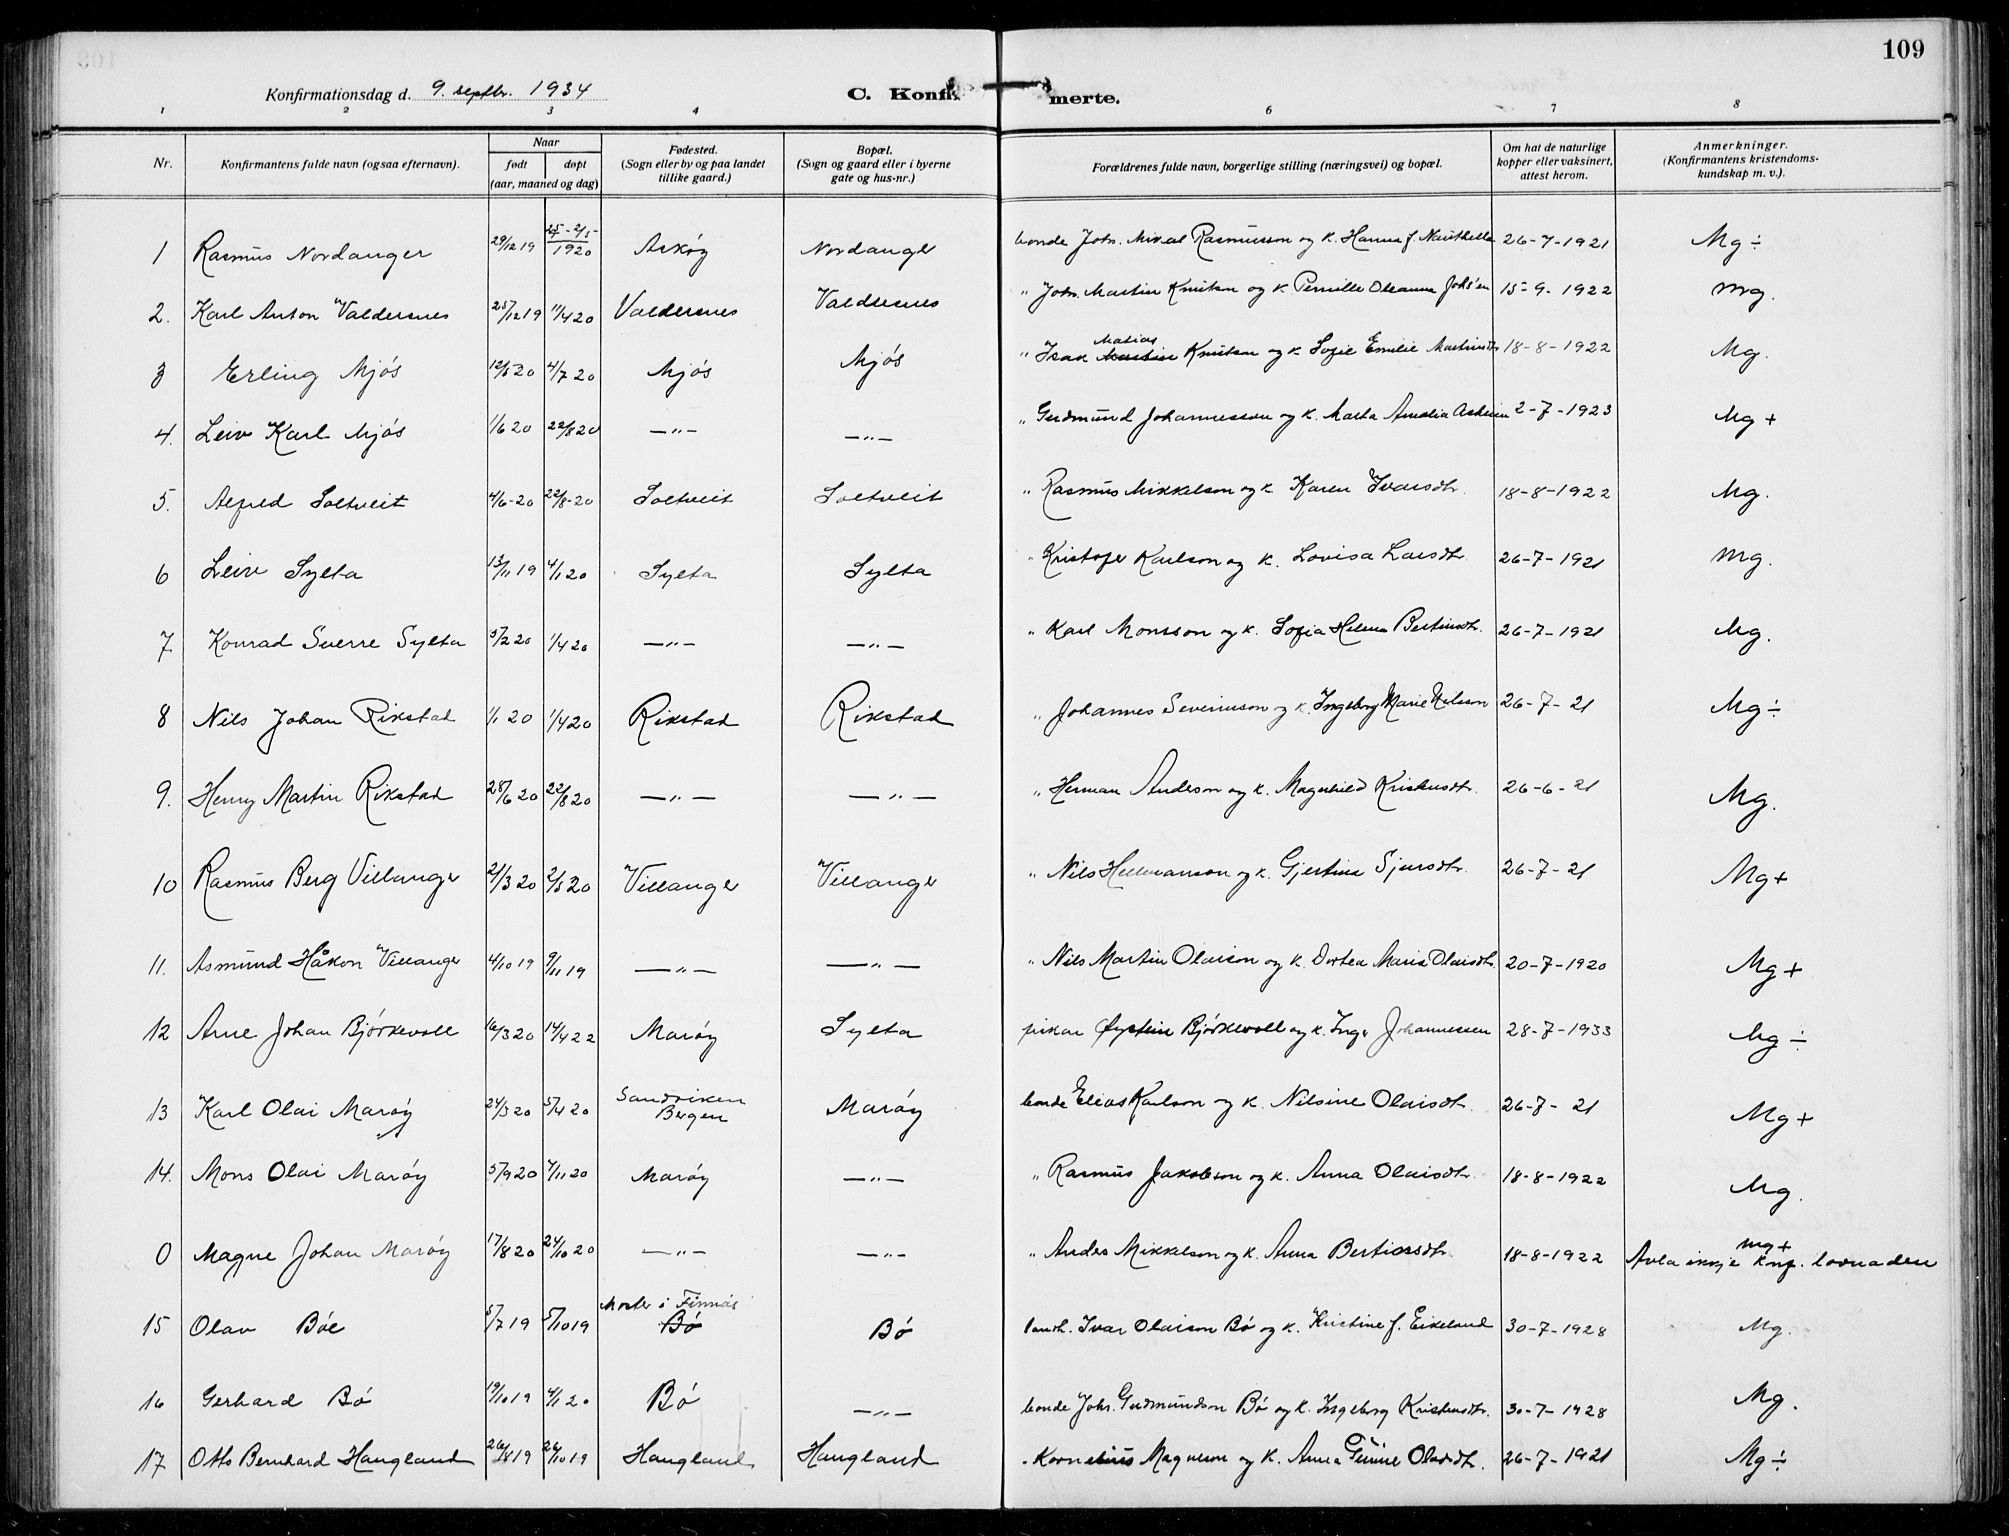 109
Konfirmationsdag d. 9. septbr. 1934
C. Konfir merte.
1 2 3 4 5 6 7 8
Nr.
Konfirmantens fulde navn (ogsaa efternavn).
Naar
født døpt
(aar, maaned og dag)
Fødested.
(Sogn eller by og paa landet
tillike gaard.)
Bopæl.
(Sogn og gaard eller i byerne
gate og hus-nr.)
Forældrenes fulde navn, borgerlige stilling (næringsvei) og bopæl.
Om hat de naturlige
kopper eller vaksinert,
attest herom.
Anmerkninger.
(Konfirmantens kristendoms-
kundskap m. v.).
1 Rasmus Nordanger 29/12 19 25-2/5- 1920 Askøy Nordanger bonde Johs. Mikal Rasmusson og k. Hanna f. 26-7-1921 Mg ÷
2. Karl Anton Valdersnes 25/12 19 11/4 20 Valdersnes Valdersnes " Johs. Martin Knutson og k. Pernille Oleanna Johs'en 15-9-1922 Mg.
3 Erling Mjøs 12/5 20 4/7 20 Mjøs Mjøs " Isak Matias Knutson og k. Sofie Emilie Martinsdtr 18-8-1922 Mg.
4. Leiv Karl Mjøs 1/6 20 22/8 20 —"— —"— " Gudmund Johannesson og k. Marta Amalia 2-7-1923 Mg +
5. Alfred Soltveit 4/6-20 22/8-20 Soltveit Soltveit " Rasmus Mikkelson og k. Karen Ivarsdtr. 18-8-1922 Mg.
6 Leiv Sylta 13/11 19 4/1 20 Sylta Sylta " Kristofer Karlson og k. Lovisa Larsdtr. 26-7-1921 Mg.
7 Konrad Sverre Sylta 5/2 20 1/4 20 —"— —"— " Karl Monsson og k. Sofia Helena Bertinsdtr. 26-7-1921 Mg.
8 Nils Johan Rikstad 1/1 20 1/4 20 Rikstad Rikstad " Johannes Severinson og k. Ingeborg Marie Nilsson 26-7-21 Mg ÷
9. Henry Martin Rikstad 28/6 20 22/8 20 —"— —"— " Herman Anderson og k. Magnhild Kristensdtr. 26-6-21 Mg.
10 Rasmus Berg Villanger 21/3 20 2/5 20 Villanger Villanger " Nils Hermanson og k. Gjertina Sjursdtr. 26-7-21 Mg+
11. Asmund Håkon Villanger 4/10 19 9/11 19 —"— —"— " Nils Martin Olaison og k. Dortea Maria Olaisdtr. 20-7-1920 Mg +
12 Arne Johan Bjørkevoll 16/3 20 14/4 22 Marøy Sylta fiskar Øystein Bjørkevoll og k. Inga Johannessen 28-7-1933 Mg ÷
13 Karl Olai Marøy 24/3 20 5/4 20 Sandviken Bergen Marøy bonde Elias Karlson og k. Nilsine Olaisdtr. 26-7-21 Mg +
14. Mons Olai Marøy 5/9 20 7/11 20 Marøy —"— " Rasmus Jakobson og k. Anna Olaisdtr. 18-8-1922 Mg.
0 Magne Johan Marøy 17/8 20 24/10 20 —"— —"— " Anders Mikkelson og k. Anna 18-8-1922 mg+ Avla ikkje knf. lovnaden
15 Olav Bøe 5/7 19 5/10 19 Moster i Finnås Bø Bø landh. Ivar Olaison Bø og k. Kristine f. Eikeland 30-7-1928 Mg.
16 Gerhard Bø 19/10 19 4/1 20 Bø —"— bonde Johs. Gudmundson Bø og k. Ingeborg Kristensdtr. 30-7-1928 Mg.
17 Otto Bernhard Haugland 26/8 19 26/10 19 Haugland Haugland " Kornelius Magneson og k. Anna Olavsdtr. 26-7-1921 Mg ÷